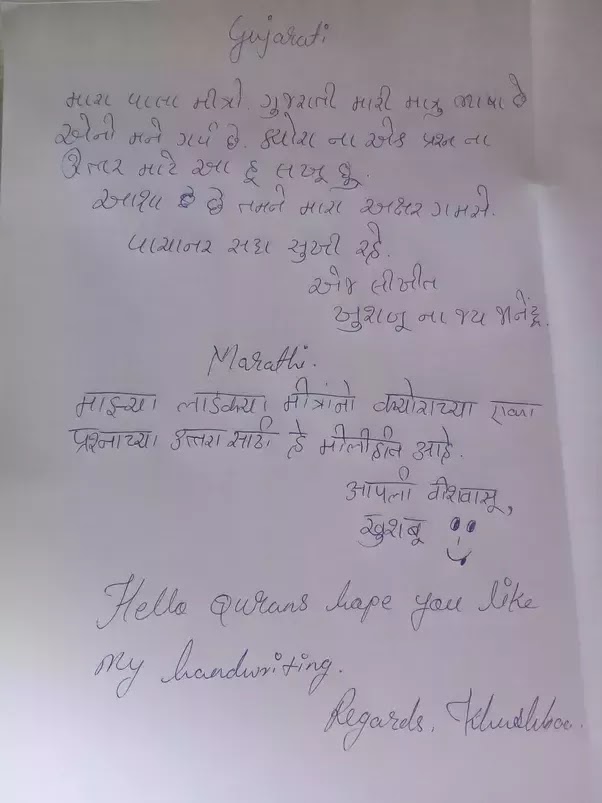 Gujarati
મારા વાલા મીત્રો. ગુજરાતી મારી માત્રુ ભાષા છે
એનો મને ગર્વ છે. ક્યોરા ના એક પ્રશ્ન ના
ઉત્તર માટે આ હૂ લખૂ છૂ.
આશા છે તમને મારા અક્ષર ગમસે.
વાચાનર સદા સુખી રહે.
એજ લીખીત
ખુશબૂ ના જય જીનેંદ્ર.
Marathi.
माझ्या लाडक्या मीत्रांनो क्योराच्या एका
प्रश्नाच्या उत्तरा साठी हे मी लीहीत आहे.
आपली वीशवासू,
खुशबू
Hello Qurans hope you like
my handwriting.
Regards, Khushboo.